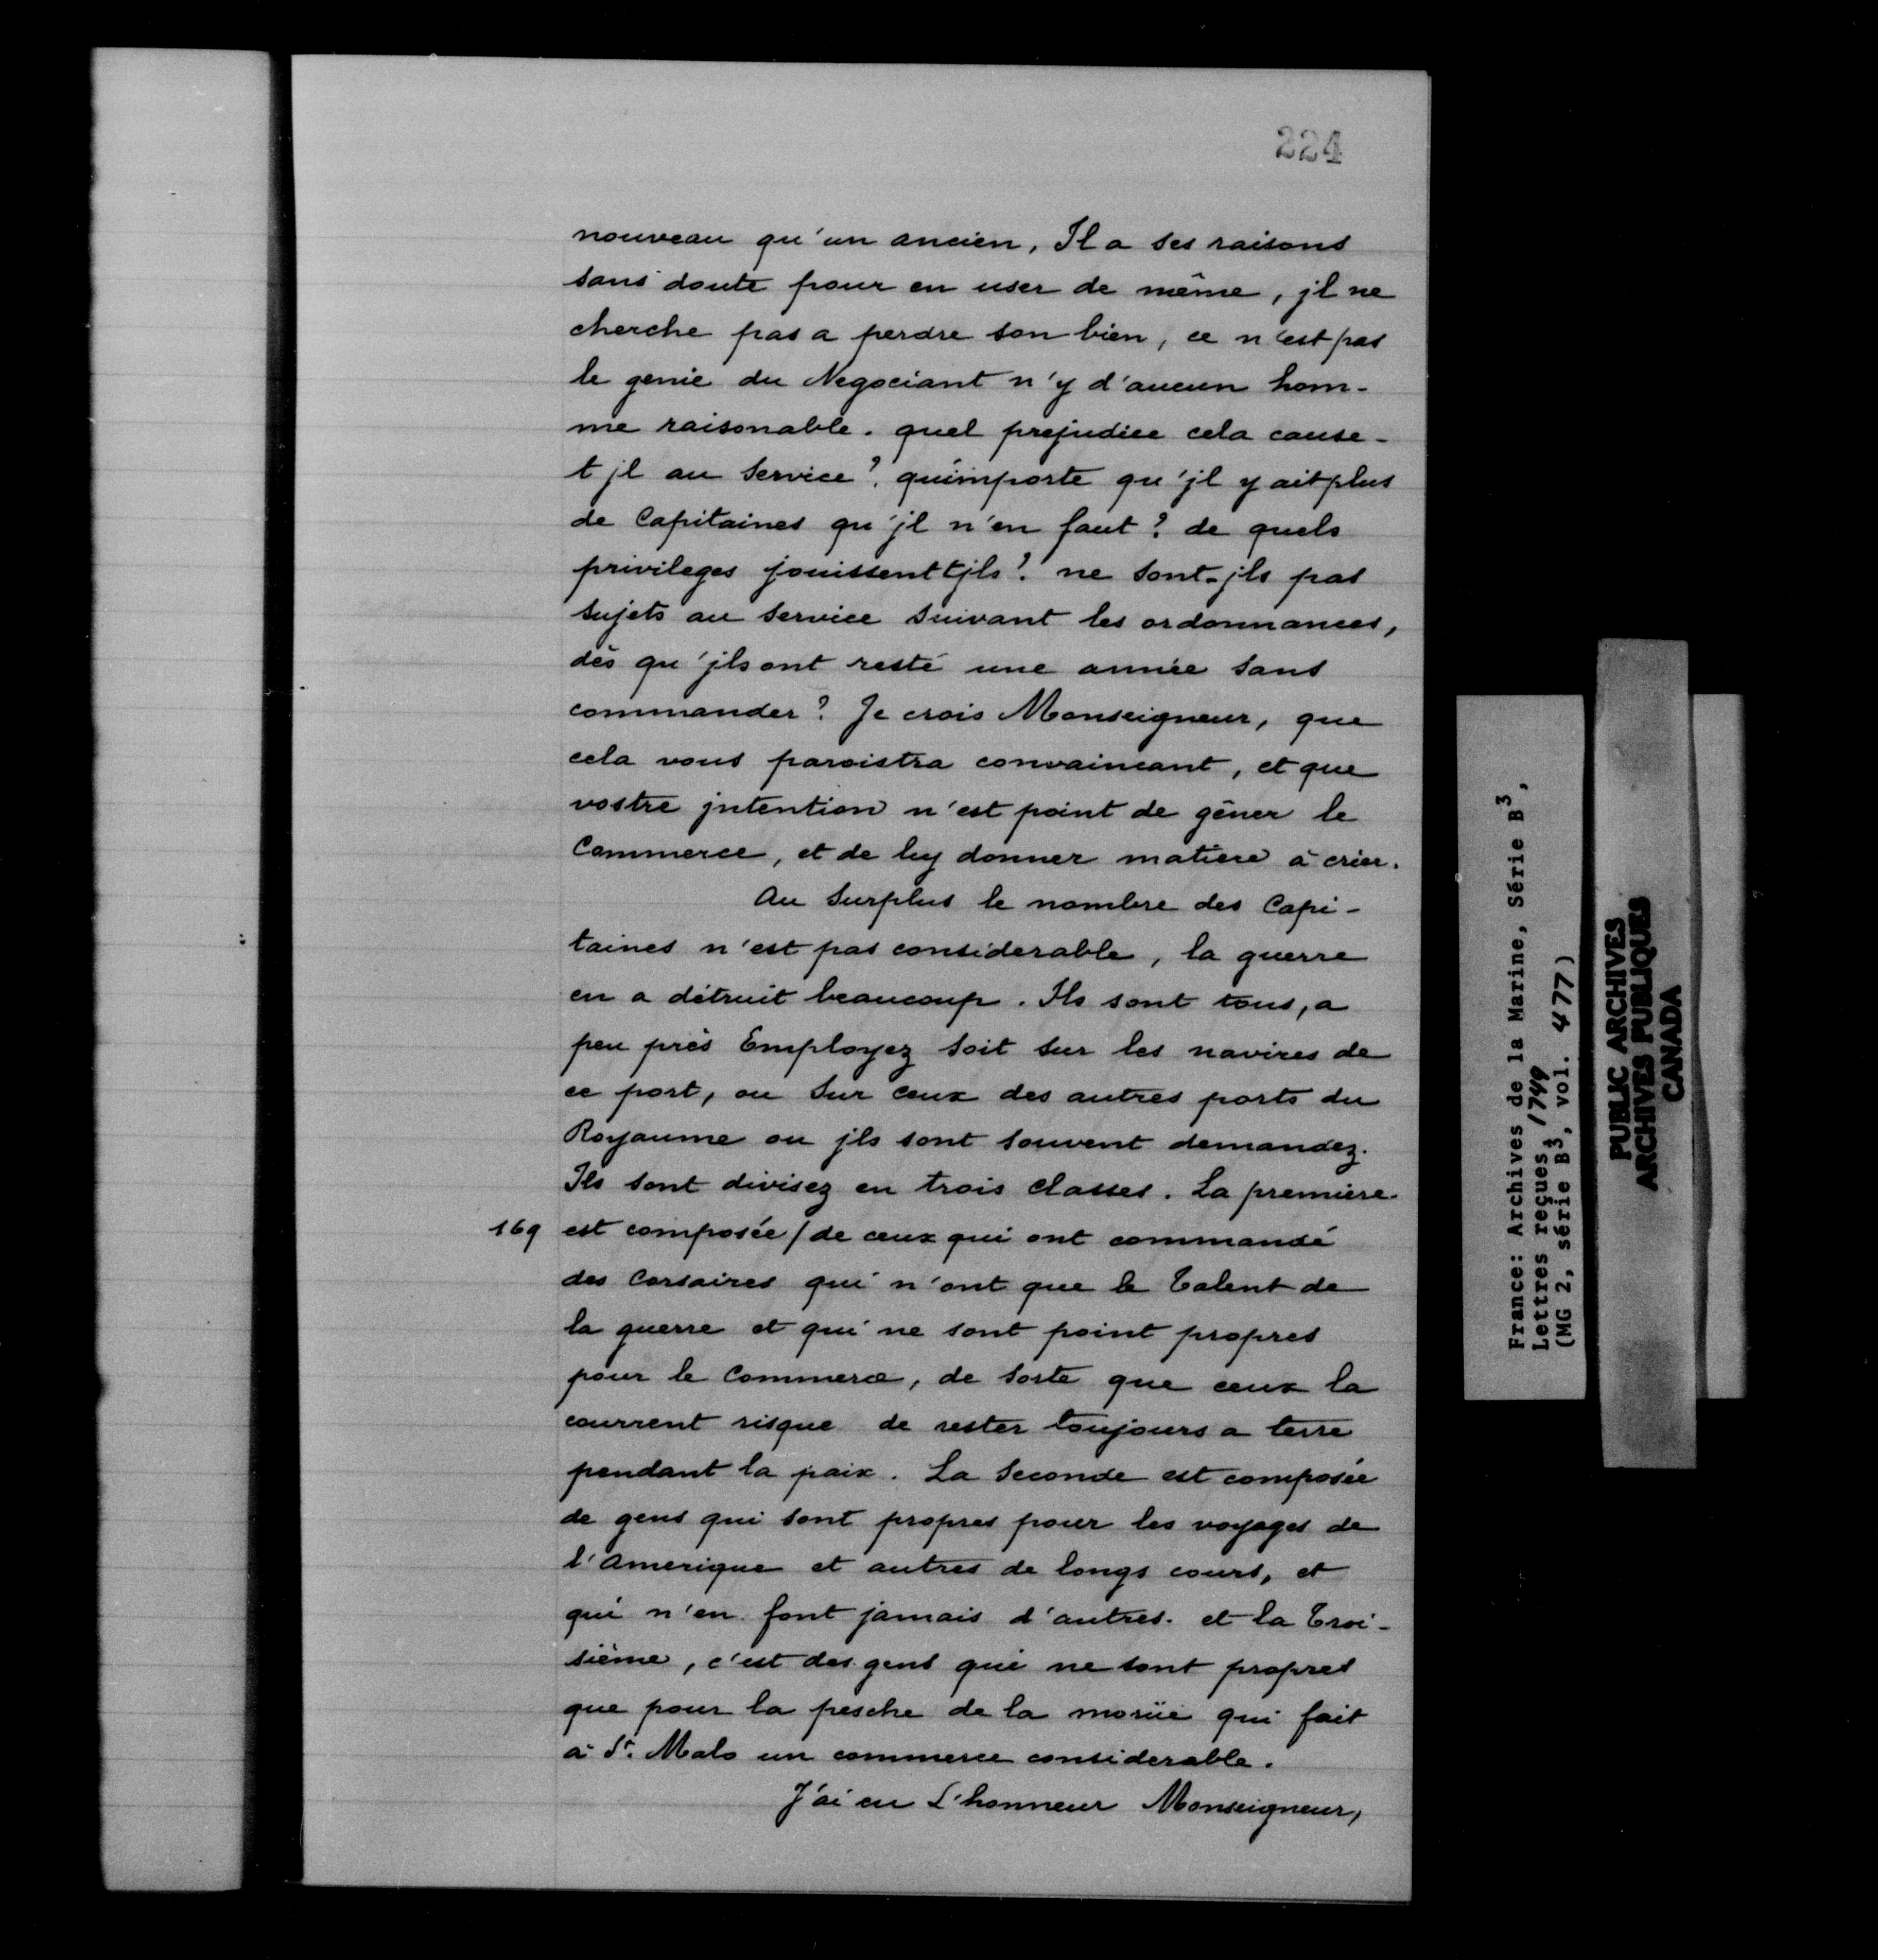 224
nouveau qu'un ancien, Il a ses raisons
sans doute pour en user de même, jl ne
cherche pas a perdre son bien, ce n'est pas
le genie du Negociant n'y d'aucun hom-
me raisonable. quel prejudice cela cause-
t jl au Service? qu'importe qu'jl y ait plus
de Capitaines qu'jl n'en faut? de quels
privileges jouissent tjls? ne sont-jls pas
sujets au service suivant les ordonnances,
dès qu'jls ont resté une année sans
commander? Je crois Monseigneur, que
cela vous paroistra convaincant, et que
vostre jntention n'est point de gêner le
Commerce, et de luy donner matiere à crier.
Au surplus le nombre des Capi-
taines n'est pas considerable, la guerre
en a détruit beaucoup. Ils sont tous, a
peu près Employez soit sur les navires de
ce port, ou sur ceux des autres ports du
Royaume ou jls sont souvent demandez.
Ils sont divisez en trois classes. La première
169 est composée / de ceux qui ont commandé
des Corsaires qui n'ont que le Talent de
la guerre et qui ne sont point propres
pour le Commerce, de sorte que ceux la
courrent risque de rester toujours a terre
pendant la paix. La Seconde est composée
de gens qui sont propres pour les voyages de
l'amerique et autres de longs cours, et
qui n'en font jamais d'autres. et la Troi-
sième, c'est des gens qui ne sont propres
que pour la pesche de la morüe qui fait
à St. Malo un commerce considerable.
J'ai eu L'honneur Monseigneur,
France: Archives de la Marine, Série B3,
Lettres reçues, 1749
(MG 2, série B3, vol. 477)
PUBLIC ARCHIVES
ARCHIVES PUBLIQUES
CANADA